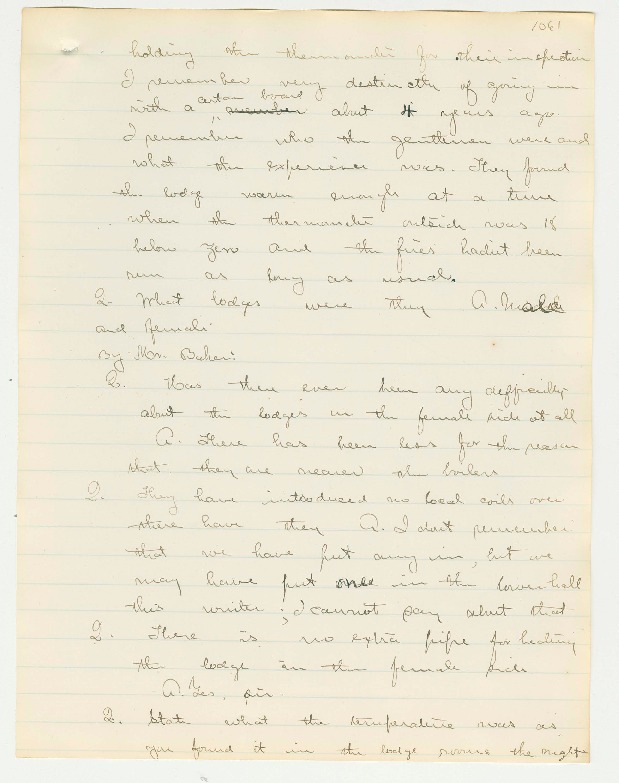 1081
holding the thermometer for their inspection
I remember very destinctly of going in
certain board
with a member about 4 years ago
I remember who the gentlemen were and
what the experience was. They found
the lodge warm enough at a time
when the thermometer outside was 18
below zero and the fires hadnt been
run as long as usual.
Q. What lodges were they A. Male
and female
By Mr. Baker:
Q. Has there ever been any difficulty
about the lodges in the female side at all
A. There has been less for the reason
that they are nearer the boilers
Q. They have introduced no local coils over
there have they A. I dont remember
that we have put any in, but we
may have put one in the lower hall
this winter; I cannot say about that
Q. There is no extra pipe for heating
the lodge in the female side
A. Yes, sir
Q. State what the temperature was as
you found it in the lodge rooms the night